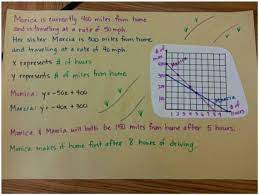 Monica is currently 400 miles from home
and is traveling at a rate of 50 mph.
Her sister Marcia is 300 miles from home
and traveling at a rate of 40 mph.
x represents # of hours
y represents # of miles from home
Monica: y = -50x + 400
Marcia: y = -40x + 300
Monica
Marcia
# of hours
1 2 3 4 5 6 7 8 9
Monica & Marcia will both be 150 miles from home after 5 hours.
Monica makes it home first after 8 hours of driving.